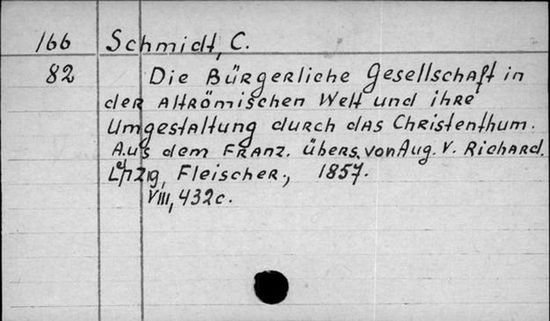 166 Schmidt, C.
82 Die Bürgerliche Gesellschaft in
der Altrömischen Welt und ihre
Umgestaltung durch das Christenthum.
Aus dem Franz. übers. von Aug. V. Richard.
Leipzig, Fleischer., 1857.
VIII, 432c.